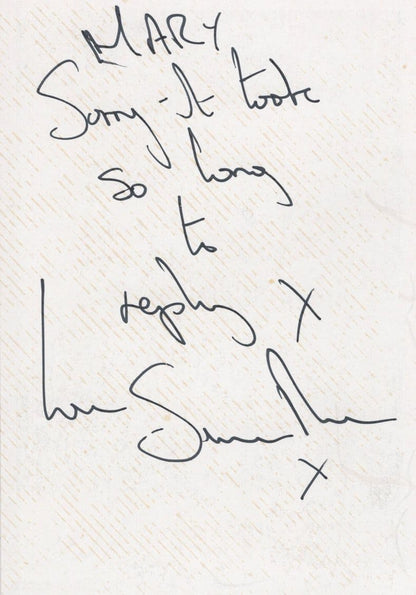 MARY
Sorry - it took
so long
to
reply x
Love
x